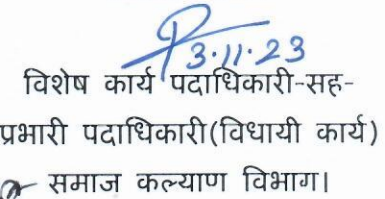 3.11.23
विशेष कार्य पदाधिकारी-सह-
प्रभारी पदाधिकारी(विधायी कार्य)
समाज कल्याण विभाग।